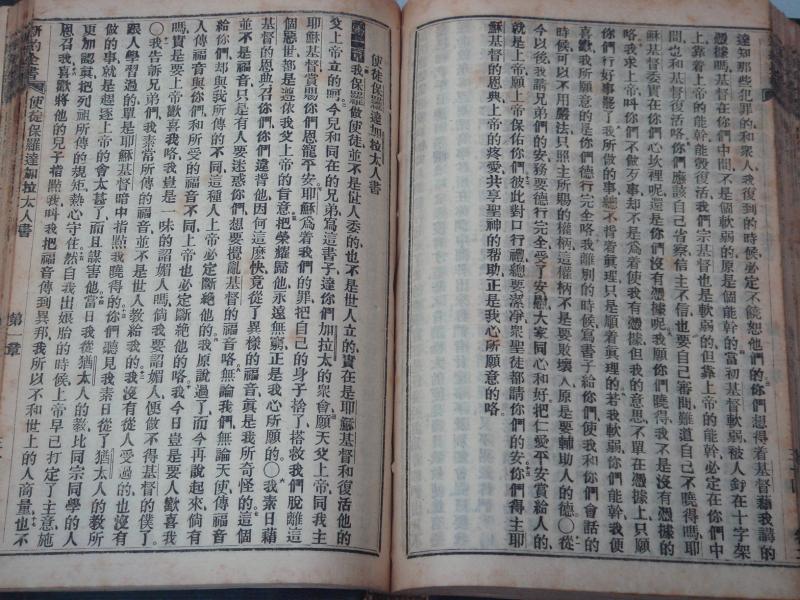 達知那些犯罪的和衆人我復到的時候必定不饒恕他們的你們想得着基督藉我講的
憑據嗎基督在你們中間不是個軟弱的原是個能幹的當初基督軟弱被人釘在十字架
上靠着上帝的能幹能彀復活我們宗基督也是軟弱的但靠上帝的能幹必定在你們中
間也和基督復活咯你們應該自己省察信主不信也要自己審問難道自己不曉得嗎耶
穌基督委實在你們心坎裡呢還是你們沒有憑據呢我願你們曉得我不是沒有憑據的
咯我求上帝叫你們不做歹事却不是爲着使我有憑據但我的意思不單在憑據上只願
你們行好事罷了我所做的事總不指着眞理只是順着眞理的若我軟弱你們能幹我便
喜歡我所願意的是你們德行完全咯我離別的時候寫書子給你們使我和你們會話的
時候可以不用嚴法只照主所賜的權柄這權柄不是要敗壞人原是要輔助人的德〇從
今以後我請兄弟們的安務要德行完全受了安慰大家同心和好把仁愛平安賞給人的
就是上帝願上帝保佑你們你們彼此對口行禮總要潔淨衆聖徒都請你們的安你們得主耶
穌基督的恩典上帝的疼愛共享聖神的帮助正是我心所願意的咯
使徒保羅達加拉太人書
第一章我保羅做使徒並不是仗人委的也不是世人立的實在是耶穌基督和復活他的
父上帝立的呵今兒和同在的兄弟寫這書子達你們加拉太的衆會願天父上帝同我主
耶穌基督賞賜你們恩寵平安耶穌爲着我們的罪把自己的身子捨了搭救我們脫離這
個惡世都是遵依我父上帝的旨意把榮耀歸他永遠無窮正是我心所願的〇我素日藉
基督的恩典召你們你們違背他因何這麼快竟從了異樣的福音眞是我所奇怪的這個
並不是福音只是有人要迷惑你們想要攪亂基督的福音咯無論我們無論天使傳福音
給你們却與我所傳的不同這種人上帝必定斷絶他的我原說過了而今再說起來倘有
人傳福音與你們和所受的福音不同上帝也必定斷絶他的咯我今日豈是要人歡喜我
嗎實是要上帝歡喜我咯我豈是一味的諂媚人嗎倘我要諂媚人便做不得基督的僕了
〇我告訴兄弟們我素常所傳的福音並不是世人教給我的我沒有從人受過的也沒有
跟人學習過的單是耶穌基督暗中指點我曉得的你們聽見我素日從了猶太人的教所
做的事就是趕逐上帝的會太甚了而且謀害他當日我從猶太人的教比同宗同學的人
更加認眞把列祖所傳的規矩熱心守住然自我出娘胎的時候上帝早已打定了主意施
恩召我喜歡將他的兒子指點我叫我把福音傳到異邦我所以不和世上的人商量也不
新約全書
使徒保羅達加拉太人書
第一章